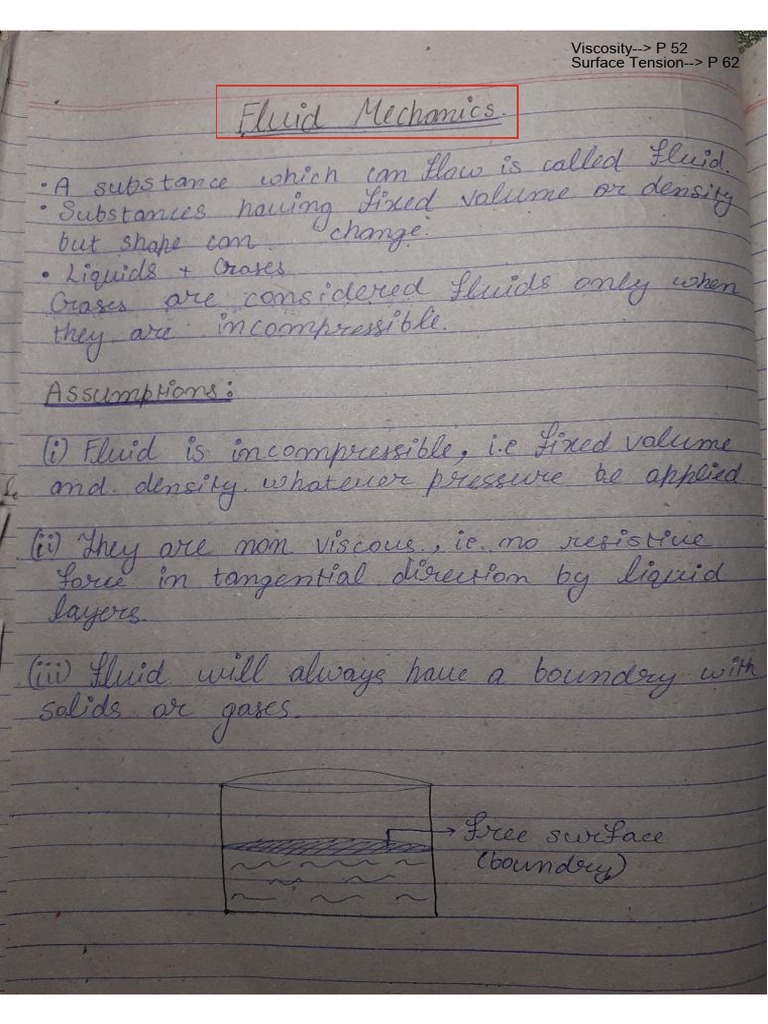 Viscosity--> P 52
Surface Tension--> P 62
Fluid Mechanics.
• A substance which can flow is called fluid.
• Substances having fixed volume or density
but shape can change.
• Liquids + Gases
Gases are considered fluids only when
they are incompressible.
Assumptions:
(i) Fluid is incompressible, i.e fixed volume
and density whatever pressure be applied
(ii) They are non viscous, ie. no resistive
force in tangential direction by liquid
layers.
(iii) Fluid will always have a boundry with
solids or gases.
→ Free surface
(boundry)